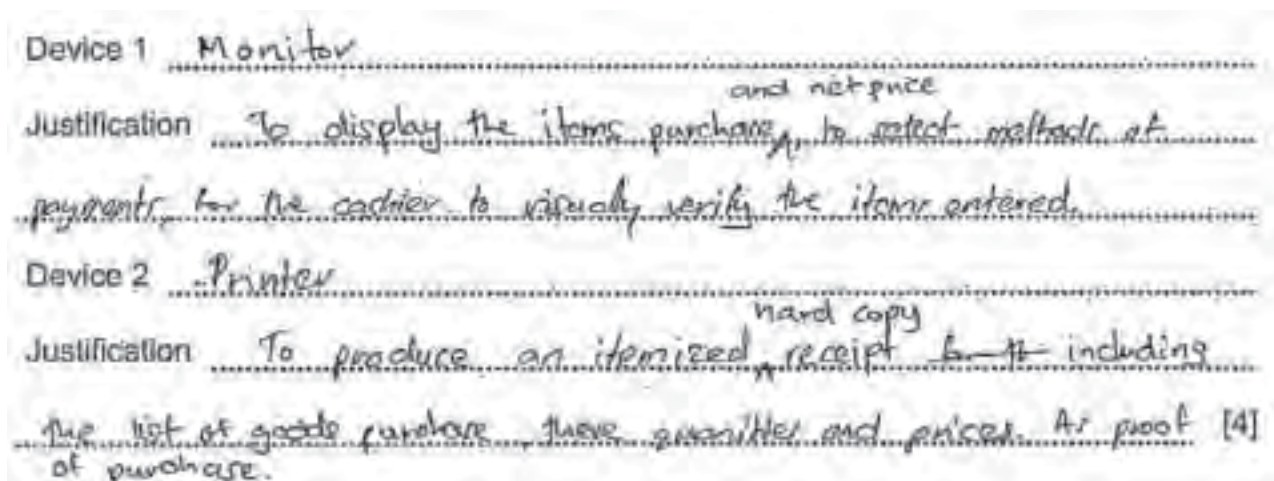 Device 1 Monitor
and net price
Justification To display the items purchase, to select methods of
payments, for the cashier to visually verify the items entered.
Device 2 Printer
hard copy
Justification To produce an itemized receipt including
the list of goods purchase, there quanities and prices. As proof [4]
of purchase.